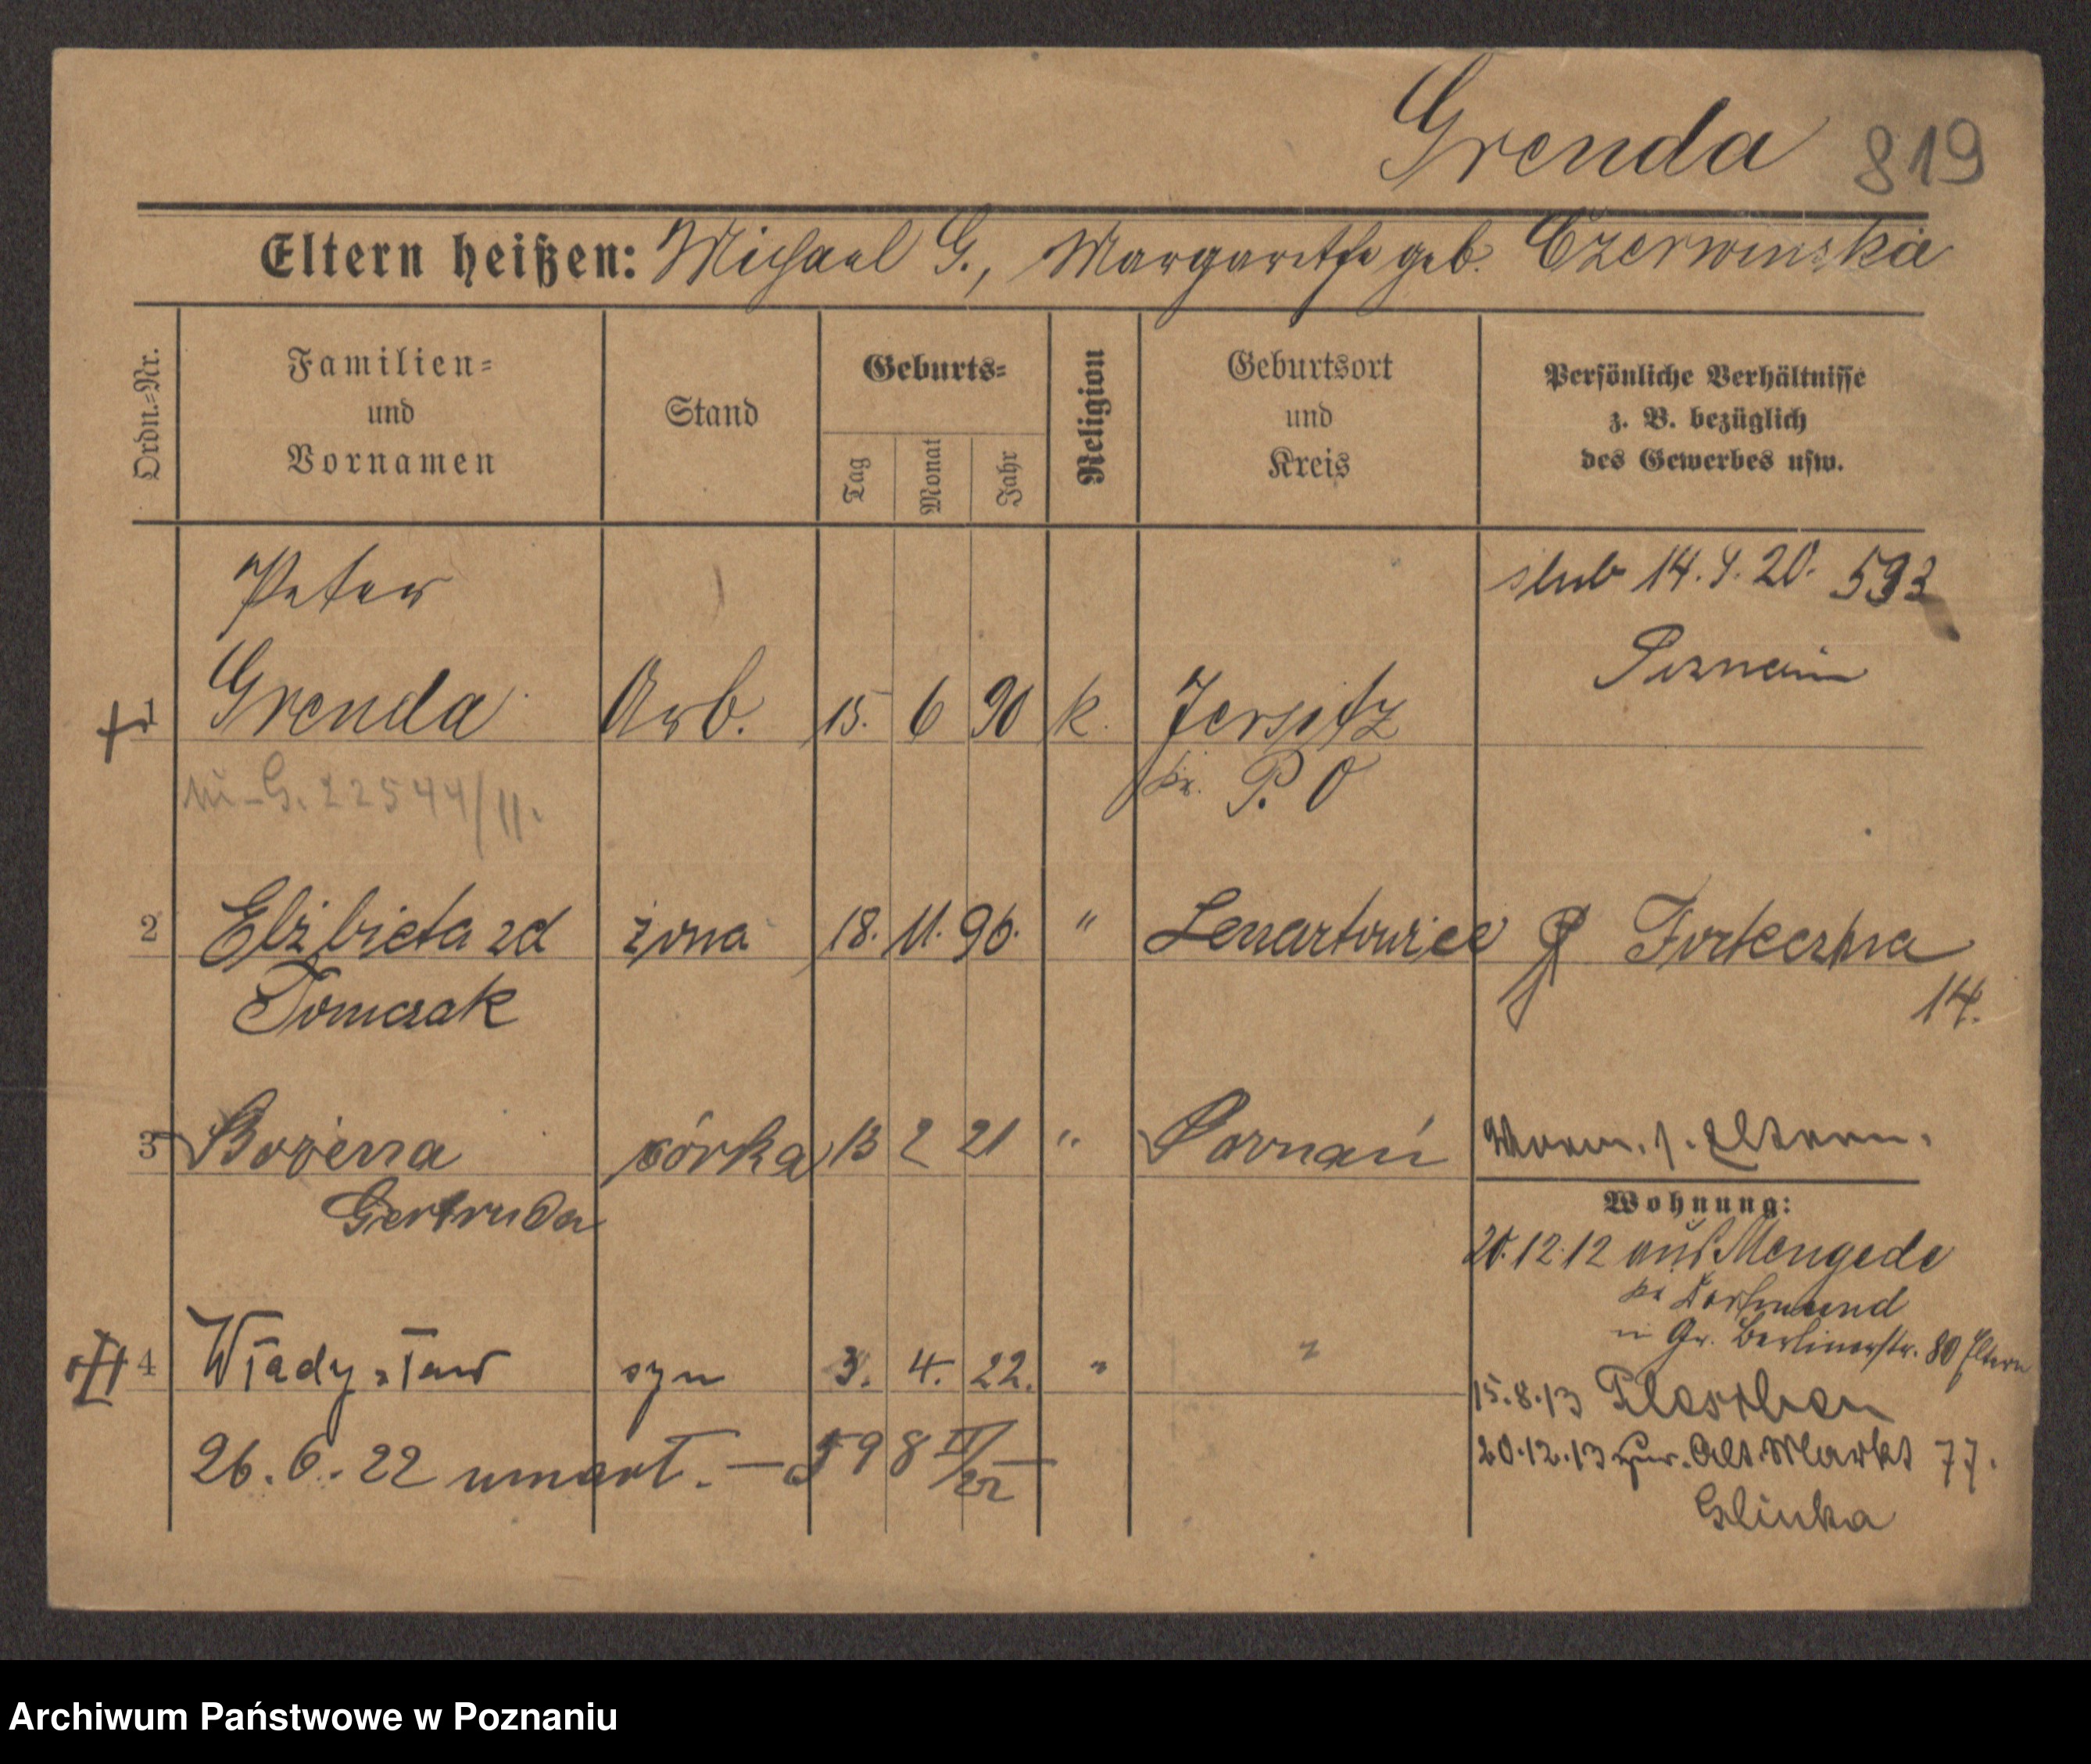 Grenda 819
Eltern heißen: Michael G., Margarethe geb. Czerwinska
Ordn.-Nr.
Familien-
und
Vornamen
Stand
Geburts-
Tag
Monat
Jahr
Religion
Geburtsort
und
Kreis
Persönliche Verhältnisse
z. B. bezüglich
des Gewerbes usw.
Peter
ślub 14.9.20. 593
Poznań
1 Grenda Arb. 15. 6 90 k. Jersitz
Kr. P. O
G. 22544/11.
2 Elżbieta zd żona 18. 11. 96. " Lenartowice Forteczna
14.
Tomczak
3 Bożena córka 13 2 21 " Poznań Eltern.
Gertruda
Wohnung:
20.12.12 aus Mengede
Kr Dortmund
in Gr. Berlinerstr. 80 Eltern
4 Władysław syn 3. 4. 22. " "
15.8.13
26.6.22 umarł. — 598 IV/22
20.12.13 zur. Alt. Markt 77.
Glinka
Archiwum Państwowe w Poznaniu